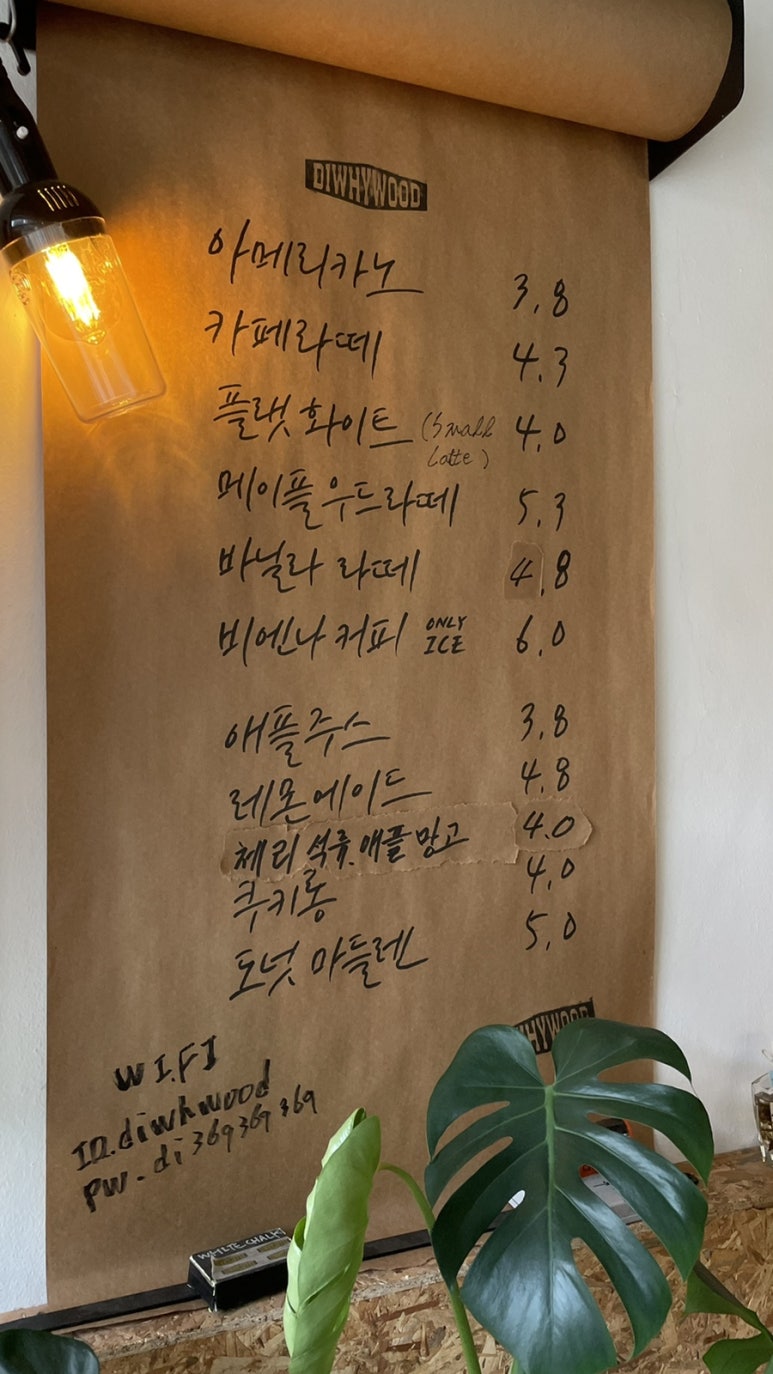 DIWHYWOOD
아메리카노 3.8
카페라떼 4.3
플랫 화이트 (Small Latte) 4.0
메이플우드라떼 5.3
바닐라 라떼 4.8
비엔나 커피 ONLY ICE 6.0
애플주스 3.8
레몬에이드 4.8
체리 석류.애플망고 4.0
쿠키롱 4.0
도넛 마들렌 5.0
HYWOOD
WI.FI
ID.diwhwood
PW.di369369369
WHITE CHALK